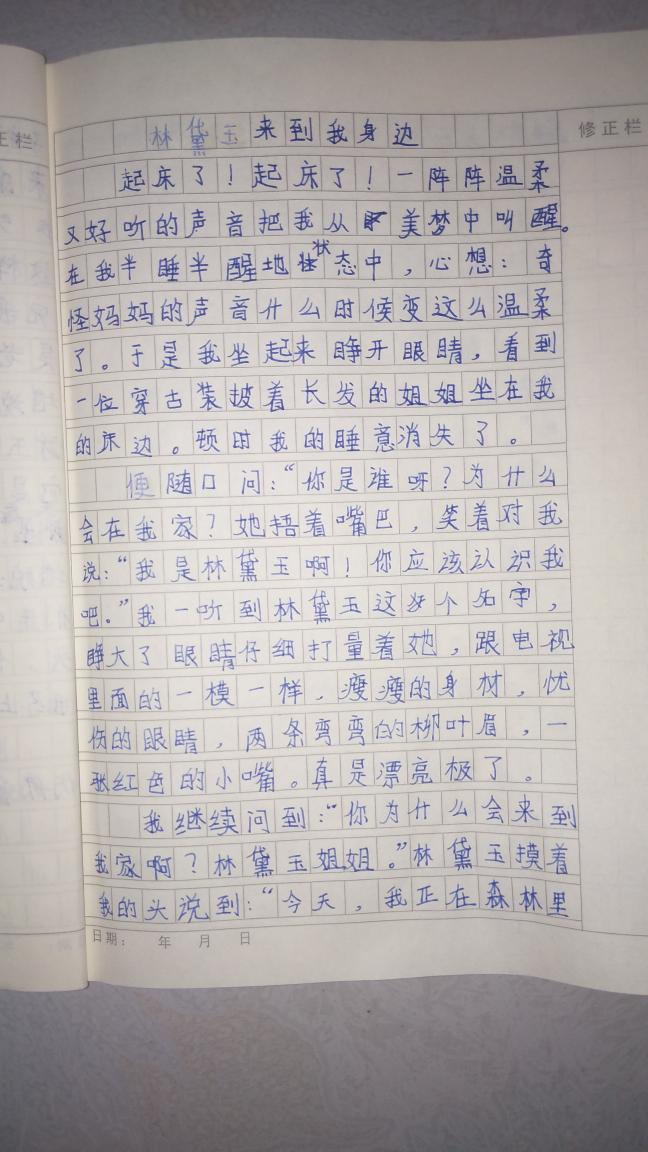 正栏
修正栏
林黛玉来到我身边
起床了！起床了！一阵阵温柔
又好听的声音把我从美梦中叫醒。
在我半睡半醒地状态中，心想：奇
怪妈妈的声音什么时候变这么温柔
了。于是我坐起来睁开眼睛，看到
一位穿古装披着长发的姐姐坐在我
的床边。顿时我的睡意消失了。
便随口问：“你是谁呀？为什么
会在我家？她捂着嘴巴，笑着对我
说：“我是林黛玉啊！你应该认识我
吧。”我一听到林黛玉这个名字，
睁大了眼睛仔细打量着她，跟电视
里面的一模一样，瘦瘦的身材，忧
伤的眼睛，两条弯弯的柳叶眉，一
张红色的小嘴。真是漂亮极了。
我继续问到：“你为什么会来到
我家啊？林黛玉姐姐。”林黛玉摸着
我的头说到：“今天，我正在森林里
日期： 年 月 日